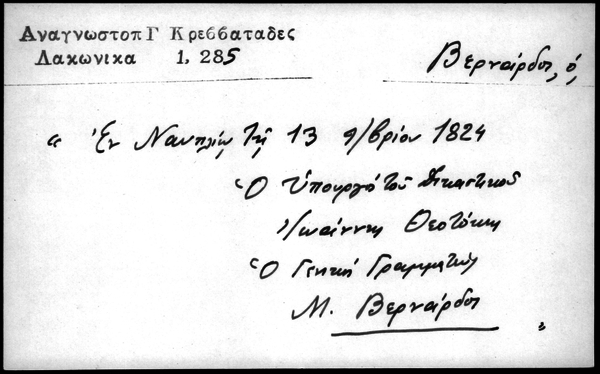 Αναγνωστοπ Γ Κρεββαταδες
Λακωνικα 1, 285
Βερνάρδοι, ό,
« Ἐν Ναυπλίῳ τῇ 13 9/βρίου 1824
Ὁ Ὑπουργὸ τοῦ Δικαστικοῦ
Ἰωάννης Θεοτόκης
Ὁ Γενικὸ Γραμματεὺς
Μ. Βερνάρδοι »